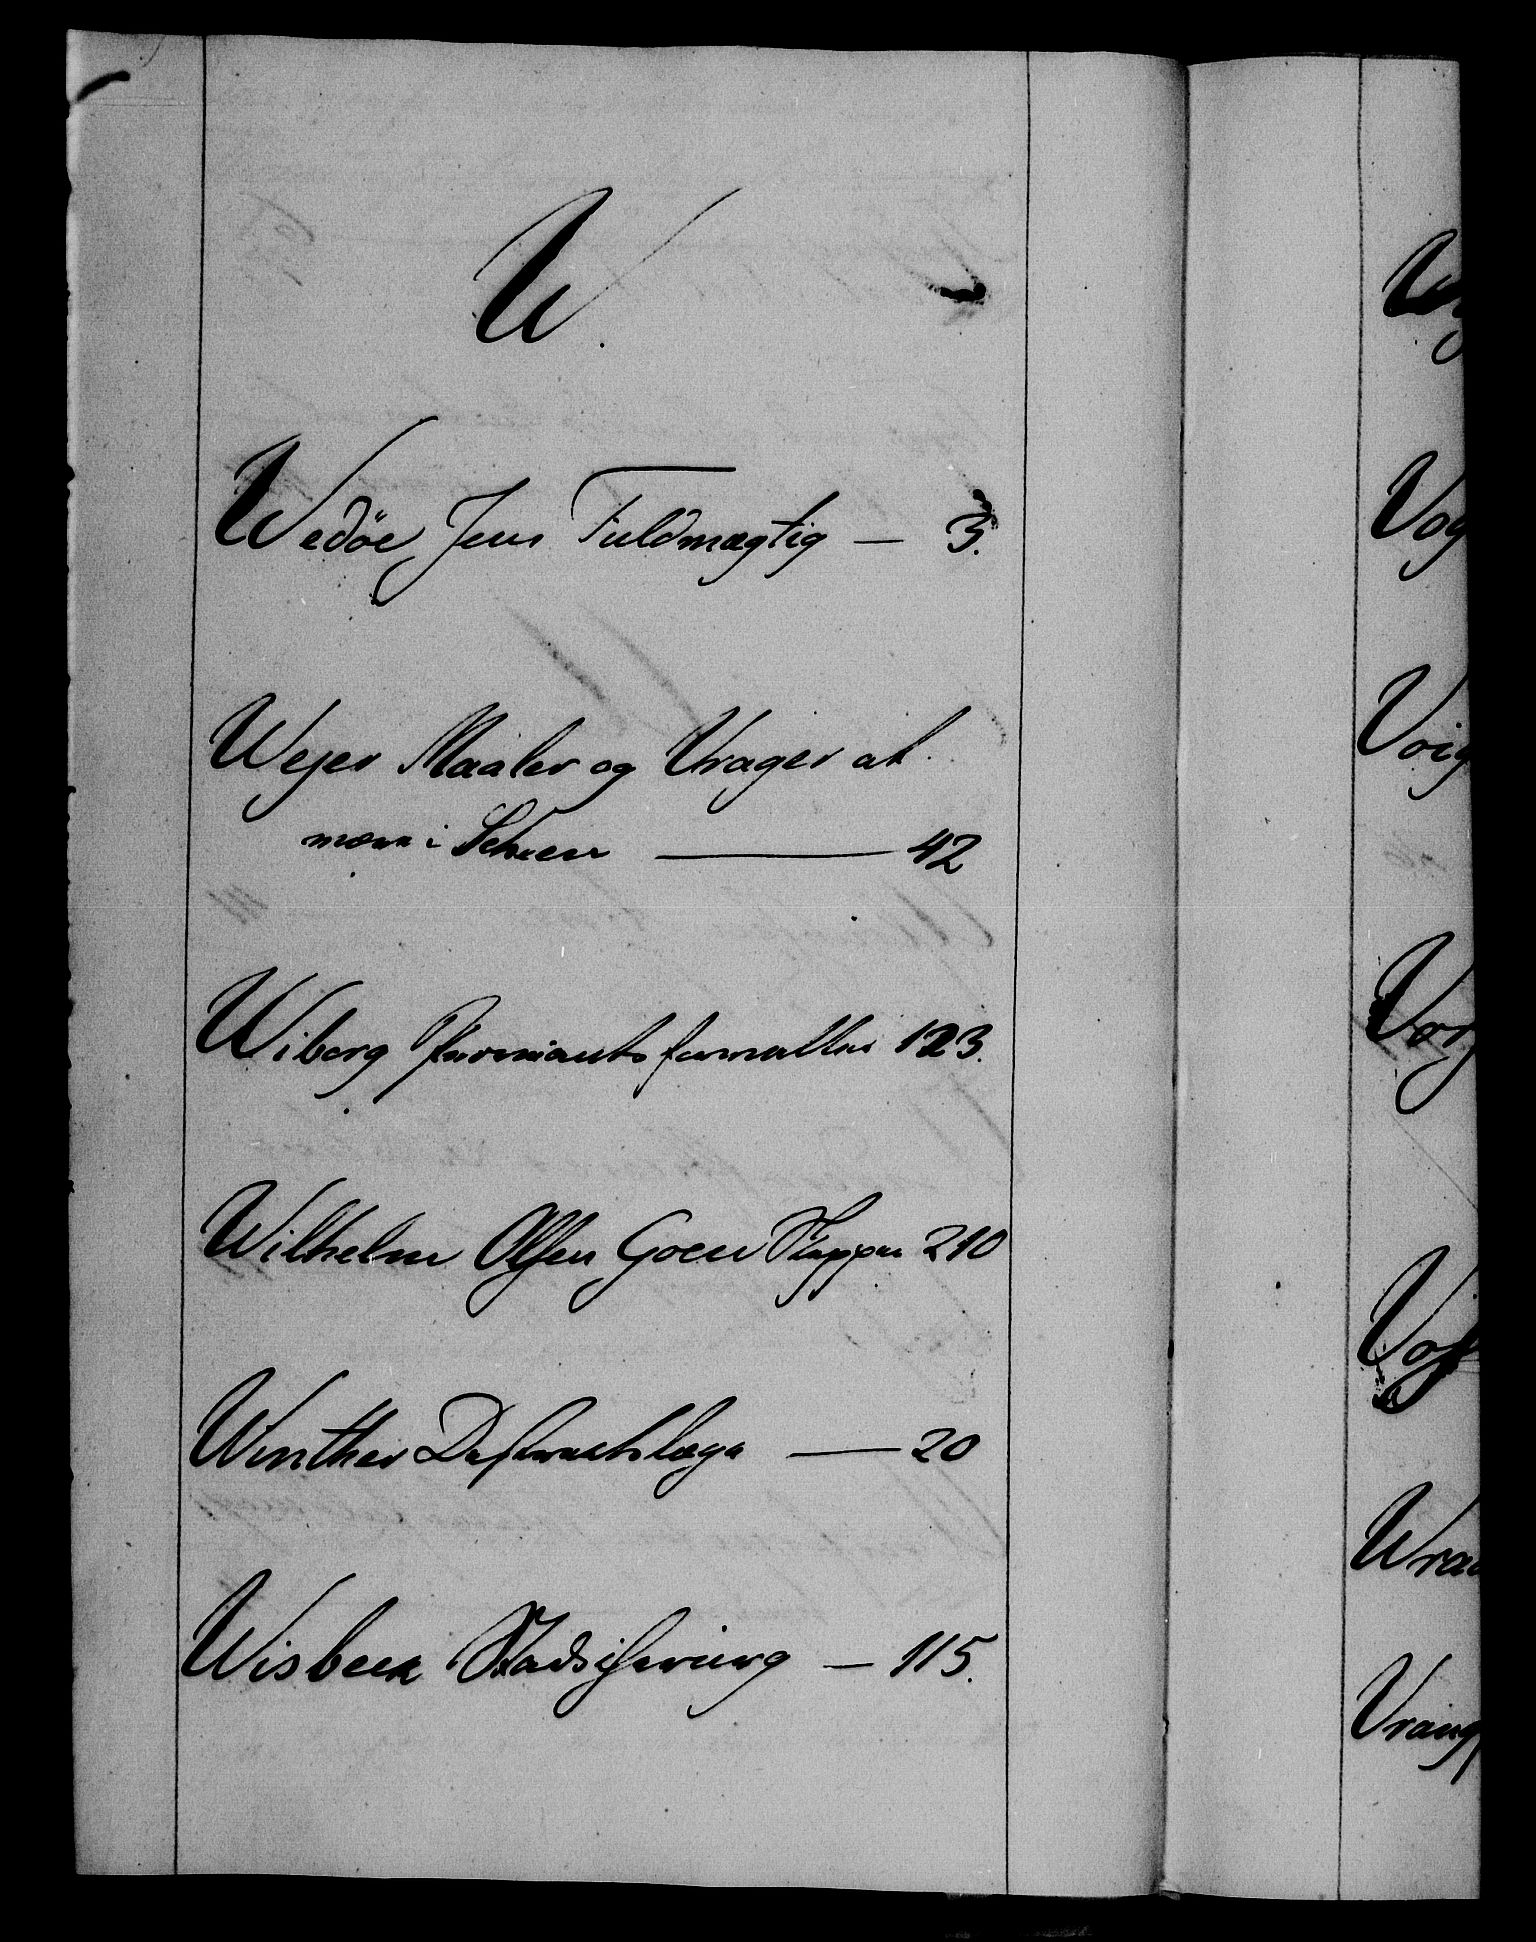 W.
Wedöe, Jens Fuldmægtig — 3.
Wejer Maaler og Vrager at
være i Schien — 42
Wiberg Proviantsforvalter 123.
Wilhelm Olsen Goen Skipper 210
Winther Destruktslæge — 20
Wisbeck Stadsisering — 115.
Vog
Voig
Vog
Vos
Wra
Vrang